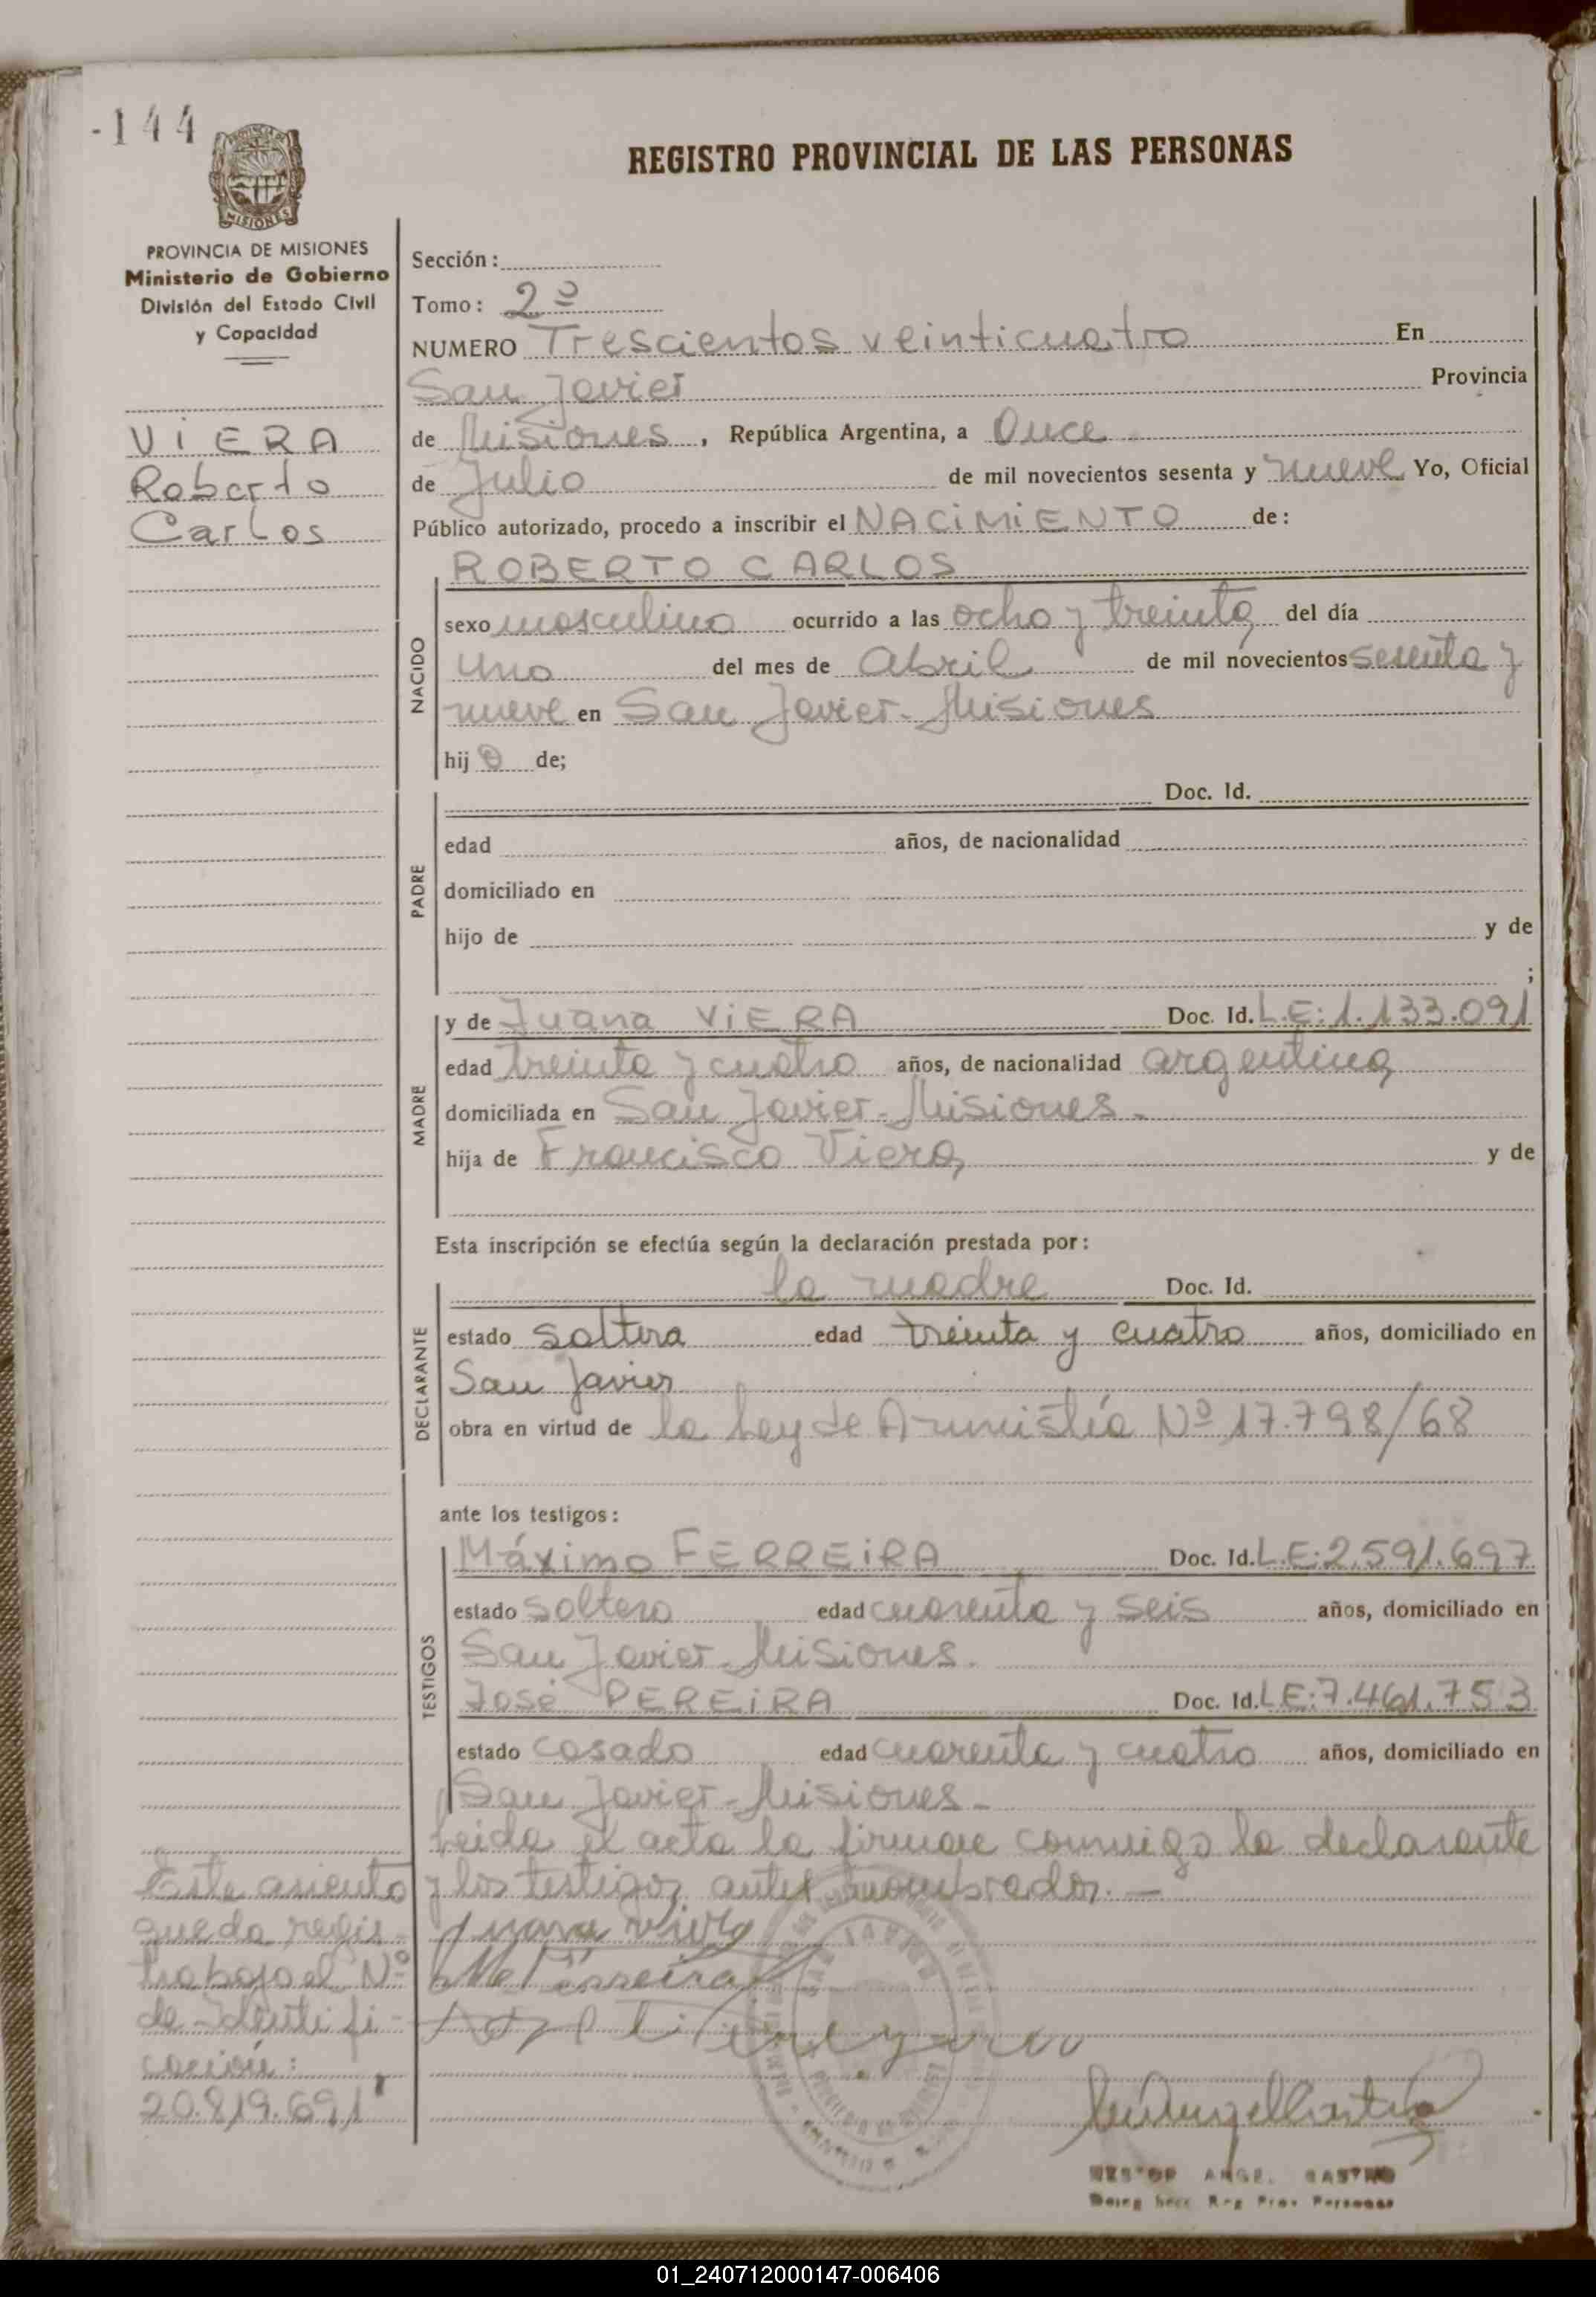 -144
REGISTRO PROVINCIAL DE LAS PERSONAS
PROVINCIA DE MISIONES
Ministerio de Gobierno
División del Estado Civil
y Capacidad
VIERA
Roberto
Carlos
Sección:
Tomo: 2º
NUMERO Trescientos veinticuatro En
San Javier Provincia
de Misiones, República Argentina, a Once
de Julio de mil novecientos sesenta y nueve Yo, Oficial
Público autorizado, procedo a inscribir el NACIMIENTO de:
NACIDO
ROBERTO CARLOS
sexo masculino ocurrido a las ocho y treinta del día
uno del mes de Abril de mil novecientos sesenta y
nueve en San Javier - Misiones
hijo de;
PADRE
Doc. Id.
edad años, de nacionalidad
domiciliado en
hijo de y de
;
MADRE
y de Juana VIERA Doc. Id. L.E: 1.133.091
edad treinta y cuatro años, de nacionalidad argentina
domiciliada en San Javier - Misiones -
hija de Francisco Viera y de
Esta inscripción se efectúa según la declaración prestada por:
DECLARANTE
la madre Doc. Id.
estado soltera edad treinta y cuatro años, domiciliado en
San Javier
obra en virtud de la Ley de Amnistía Nº 17.798/68
ante los testigos:
TESTIGOS
Máximo FERREIRA Doc. Id. L.E: 2.591.697
estado soltero edad cuarenta y seis años, domiciliado en
San Javier - Misiones.
José PEREIRA Doc. Id. L.E: 7.461.753
estado casado edad cuarenta y cuatro años, domiciliado en
San Javier - Misiones -
Leida el acta la firman conmigo la declarante
y los testigos antes nombrados. —
Juana Viera
M Ferreira
Este asiento
queda regis
tro bajo el Nº
de Identifi-
cación:
20.819.691
NESTOR ANGEL CASTRO
01_240712000147-006406